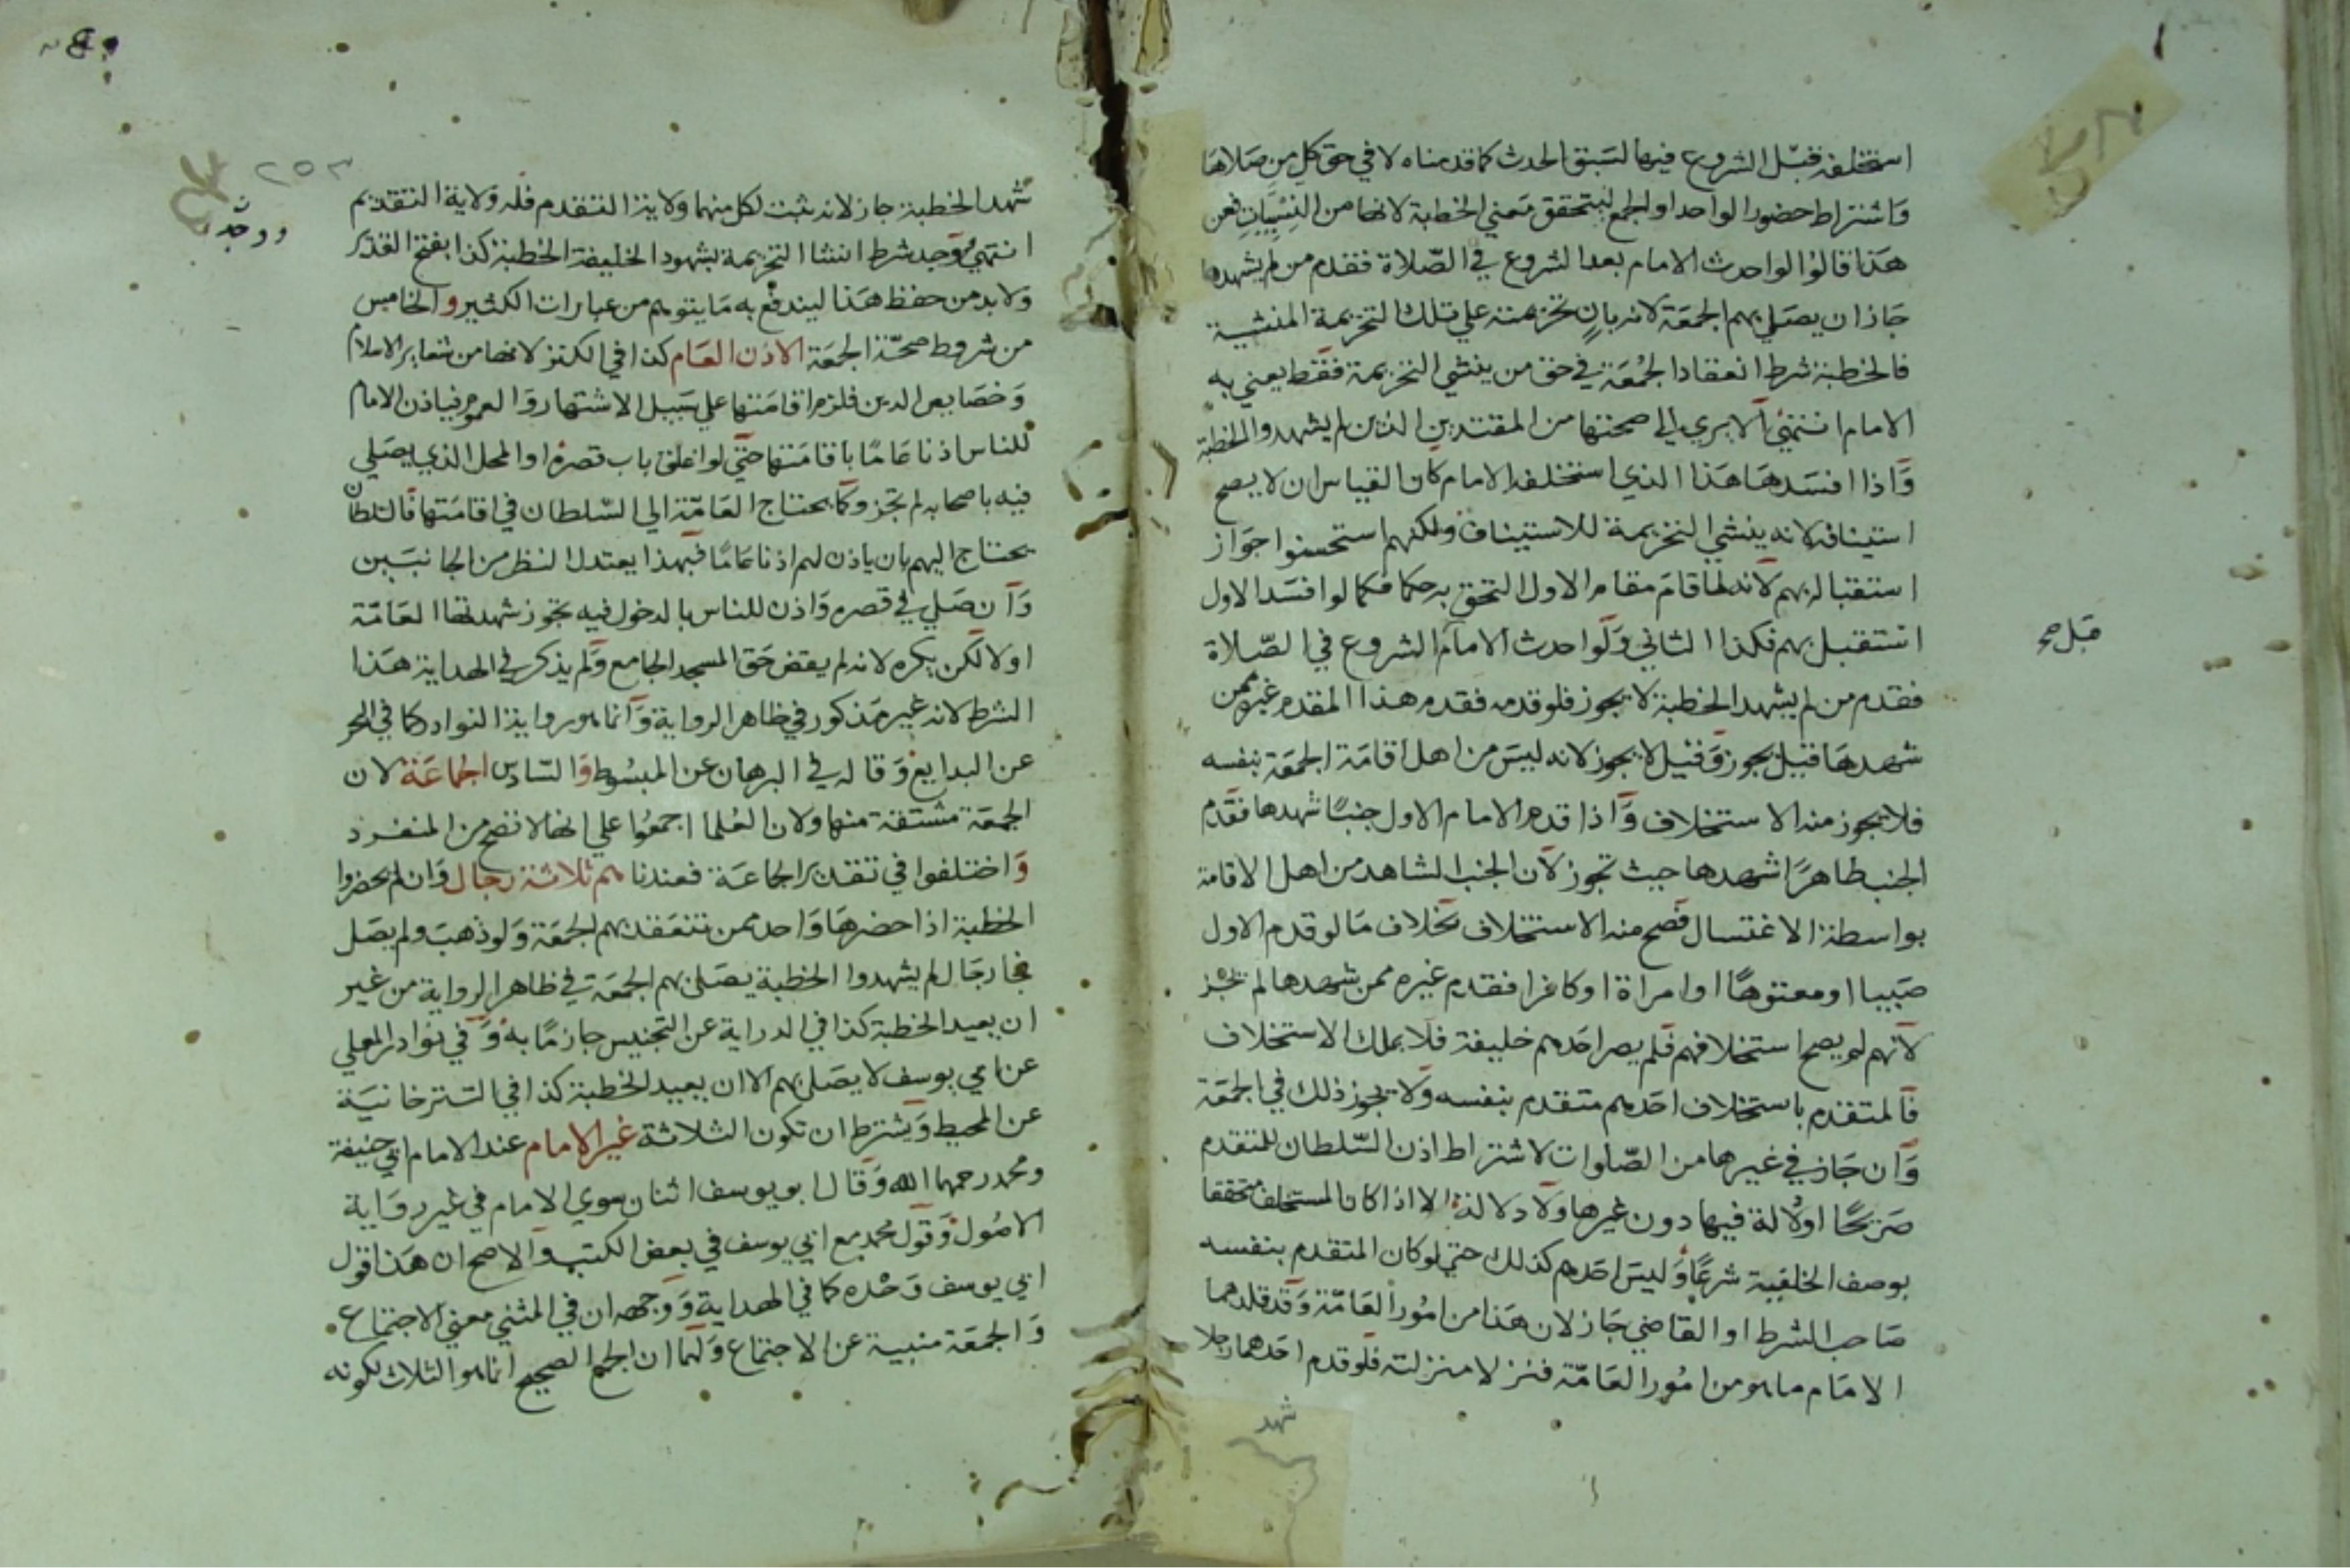 استخلفه قبل الشروع فيها لسبق الحدث كما قدمناه لا في حق كل من صلاها
واشتراط حضور الواحد او الجمع ليتحقق معني الخطبة لانها من النسبيات فعن
هذا قالوا لو احدث الامام بعد الشروع في الصلاة فقدم من لم يشهدها
جاز ان يصلي بهم الجمعة لانه بان تحريمته علي تلك التحريمة المنشية
فالخطبة شرط انعقاد الجمعة في حق من ينشي التحريمة فقط يعني به
الامام انتهي الا يري الي صحتها من المقتدين الذين لم يشهدوا الخطبة
واذا افسدها هذا الذي استخلفه الامام كان القياس ان لا يصح
استينافه لانه ينشي التحريمة للاستيناف ولكنهم استحسنوا جواز
استقباله بهم لانه لما قام مقام الاول التحق به حكما فكما لو افسد الاول
استقبل بهم فكذا الثاني ولو احدث الامام الشروع في الصلاة
قبل صح
فقدم من لم يشهد الخطبة لا يجوز فلو قدمه فقدم هذا المقدم غيره ممن
شهدها قيل يجوز وقيل لا يجوز لانه ليس من اهل اقامة الجمعة بنفسه
فلا يجوز منه الاستخلاف واذا قدم الامام الاول جنبا شهدها فقدم
الجنب طاهرا شهدها حيث تجوز لان الجنب الشاهد من اهل الاقامة
بواسطة الاغتسال فصح منه الاستخلاف بخلاف ما لو قدم الاول
صبيا او معتوها او امراة او كافرا فقدم غيره ممن شهدها لم تجز
لانهم لم يصح استخلافهم فلم يصر احدهم خليفة فلا يملك الاستخلاف
فالمتقدم باستخلاف احدهم متقدم بنفسه ولا يجوز ذلك في الجمعة
وان جاز في غيرها من الصلوات لاشتراط اذن السلطان للمتقدم
صريحا او دلالة فيها دون غيرها ولا دلالة الا اذا كان المستخلف متحققا
بوصف الخلفية شرعا وليس احدهم كذلك حتي لو كان المتقدم بنفسه
صاحب الشرط او القاضي جاز لان هذا من امور العامة وقد قلدهما
الامام ما هو من امور العامة فنزلا منزلته فلو قدم احدهما رجلا
شهد
٢٥٣
شهد الخطبة جاز لانه ثبت لكل منهما ولاية التقدم فله ولاية التقديم
انتهي وجد شرط انشا التحريمة بشهود الخليفة الخطبة كذا بفتح القدير
ووجد
ولا بد من حفظ هذا ليندفع به ما يتوهم من عبارات الكثير والخامس
من شروط صحة الجمعة الاذن العام كذا في الكنز لانها من شعاير الاسلام
وخصايص الدين فلزم اقامتها علي سبيل الاشتهار والعموم فياذن الامام
للناس اذنا عاما باقامتها حتي لو اغلق باب قصره او المحل الذي يصلي
فيه باصحابه لم تجز وكما يحتاج العامة الي السلطان في اقامتها فالسلطان
يحتاج اليهم بان ياذن لهم اذنا عاما فبهذا يعتدل النظر من الجانبين
وان صلي في قصره واذن للناس بالدخول فيه يجوز شهدتها العامة
او لا لكن يكره لانه لم يقض حق المسجد الجامع ولم يذكر في الهداية هذا
الشرط لانه غير مذكور في ظاهر الرواية وانما هو رواية النوادر كما في البحر
عن البدايع وقاله في البرهان عن المبسوط والسادس الجماعة لان
الجمعة مشتقة منها ولان العلما اجمعوا علي انها لا تصح من المنفرد
واختلفوا في تقدير الجماعة فعندنا هم ثلاثة رجال وان لم يحضروا
الخطبة اذا حضرها واحد ممن تنعقد بهم الجمعة ولو ذهب ولم يصل
فجا رجال لم يشهدوا الخطبة يصلي بهم الجمعة في ظاهر الرواية من غير
ان يعيد الخطبة كذا في الدراية عن التجنيس جازما به وفي نوادر المعلي
عن ابي يوسف لا يصلي بهم الا ان يعيد الخطبة كذا في التترخانية
عن المحيط ويشترط ان تكون الثلاثة غير الامام عند الامام ابي حنيفة
ومحمد رحمهما الله وقال ابو يوسف اثنان سوي الامام في غير رواية
الاصول وقول محمد مع ابي يوسف في بعض الكتب والاصح ان هذا قول
ابي يوسف وحده كما في الهداية ووجهه ان في المثني معني الاجتماع
والجمعة منبية عن الاجتماع ولهما ان الجمع الصحيح انما هو الثلاث لكونه